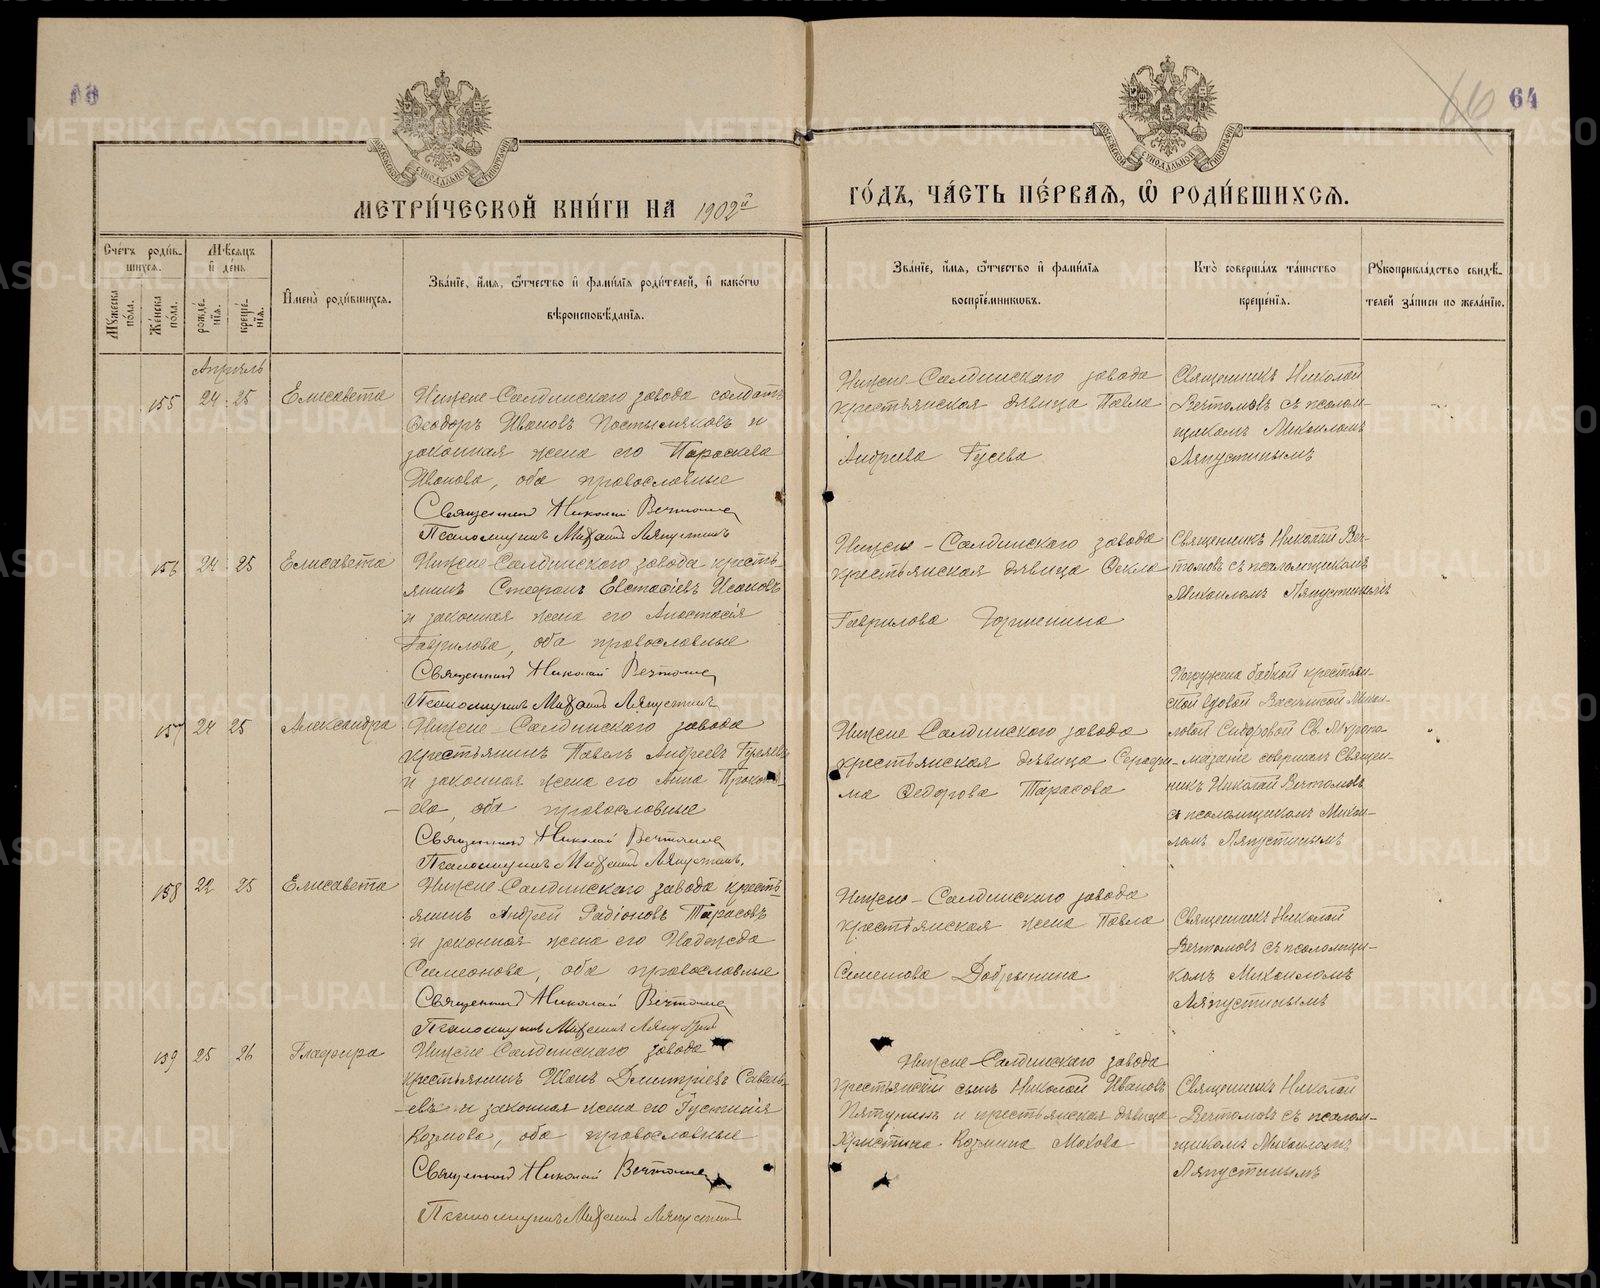 64
МЕТРИ́ЧЕСКОЙ КНИ́ГИ НА 1902й
ГО́ДЪ, ЧА́СТЬ ПЕ́РВАѦ, Ѽ РОДИ́ВШИХСѦ.
Сче́тъ роди́в-
шихся.
Мꙋжеска
по́ла.
Же́нска
по́ла.
Мѣ́сяцъ
и҆ де́нь
рожде́-
нїя.
креще́-
нїя.
И҆мена̀ роди́вшихся.
Зва́нїе, и҆́мя, ѻ҆́тчество и҆ фами́лїя роди́телей, и҆ како́гѡ
вѣроисповѣ́данїя.
Зва́нїе, и҆́мя, ѻ҆́тчество и҆ фами́лїя
воспрїе́мникѡвъ.
Кто̀ соверша́лъ та́инство
креще́нїя.
Рꙋкоприкла́дство свидѣ́-
телей за́писи по жела́нїю.
Апрѣль
155 24 25 Елисавета
Нижне-Салдинскаго завода солдатъ
Ѳеодоръ Ивановъ Постыляковъ и
законная жена его Параскева
Иванова, оба православные
Священникъ Николай Вечтомовъ
Псаломщикъ Михаилъ Ляпустинъ
Нижне-Салдинскаго завода
крестьянская дѣвица Павла
Андреева Гусева
Священникъ Николай
Вечтомовъ съ псалом-
щикомъ Михаиломъ
Ляпустинымъ
156 24 25 Елисавета
Нижне-Салдинскаго завода кресть-
янинъ Стефанъ Евстафіевъ Исаковъ
и законная жена его Анастасія
Гаврилова, оба православные
Священникъ Николай Вечтомовъ
Псаломщикъ Михаилъ Ляпустинъ
Нижне-Салдинскаго завода
крестьянская дѣвица Ѳекла
Гаврилова
Священникъ Николай Веч-
томовъ съ псаломщикомъ
Михаиломъ Ляпустинымъ
157 24 25 Александра
Нижне-Салдинскаго завода
крестьянинъ Павелъ Андреевъ
и законная жена его Анна Прокопь-
ева, оба православные
Священникъ Николай Вечтомовъ
Псаломщикъ Михаилъ Ляпустинъ.
Нижне-Салдинскаго завода
крестьянская дѣвица Серафи-
ма Ѳедорова Тарасова
Погружена бабкой крестьян-
ской вдовой Василисой Михаи-
ловой Сидоровой Св. Мѵропо-
мазаніе совершалъ Священ-
никъ Николай Вечтомовъ
съ псаломщикомъ Михаи-
ломъ Ляпустинымъ
158 22 25 Елисавета
Нижне-Салдинскаго завода кресть-
янинъ Андрей Радіоновъ Тарасовъ
и законная жена его Надежда
Симеонова, оба православные
Священникъ Николай Вечтомовъ
Псаломщикъ Михаилъ Ляпустинъ
Нижне-Салдинскаго завода
крестьянская жена Павла
Семенова Добрынина
Священникъ Николай
Вечтомовъ съ псаломщи-
комъ Михаиломъ
Ляпустинымъ
159 25 26 Глафира
Нижне-Салдинскаго завода
крестьянинъ Иванъ Димитріевъ Савель-
евъ и законная жена его Іустинія
Козмова, оба православные
Священникъ Николай Вечтомовъ
Псаломщикъ Михаилъ Ляпустинъ
Нижне-Салдинскаго завода
крестьянскій сынъ Николай Ивановъ
Пятунинъ и крестьянская дѣвица
Христина Козмина Мохова
Священникъ Николай
Вечтомовъ съ псалом-
щикомъ Михаиломъ
Ляпустинымъ
METRIKI.GASO-URAL.RU